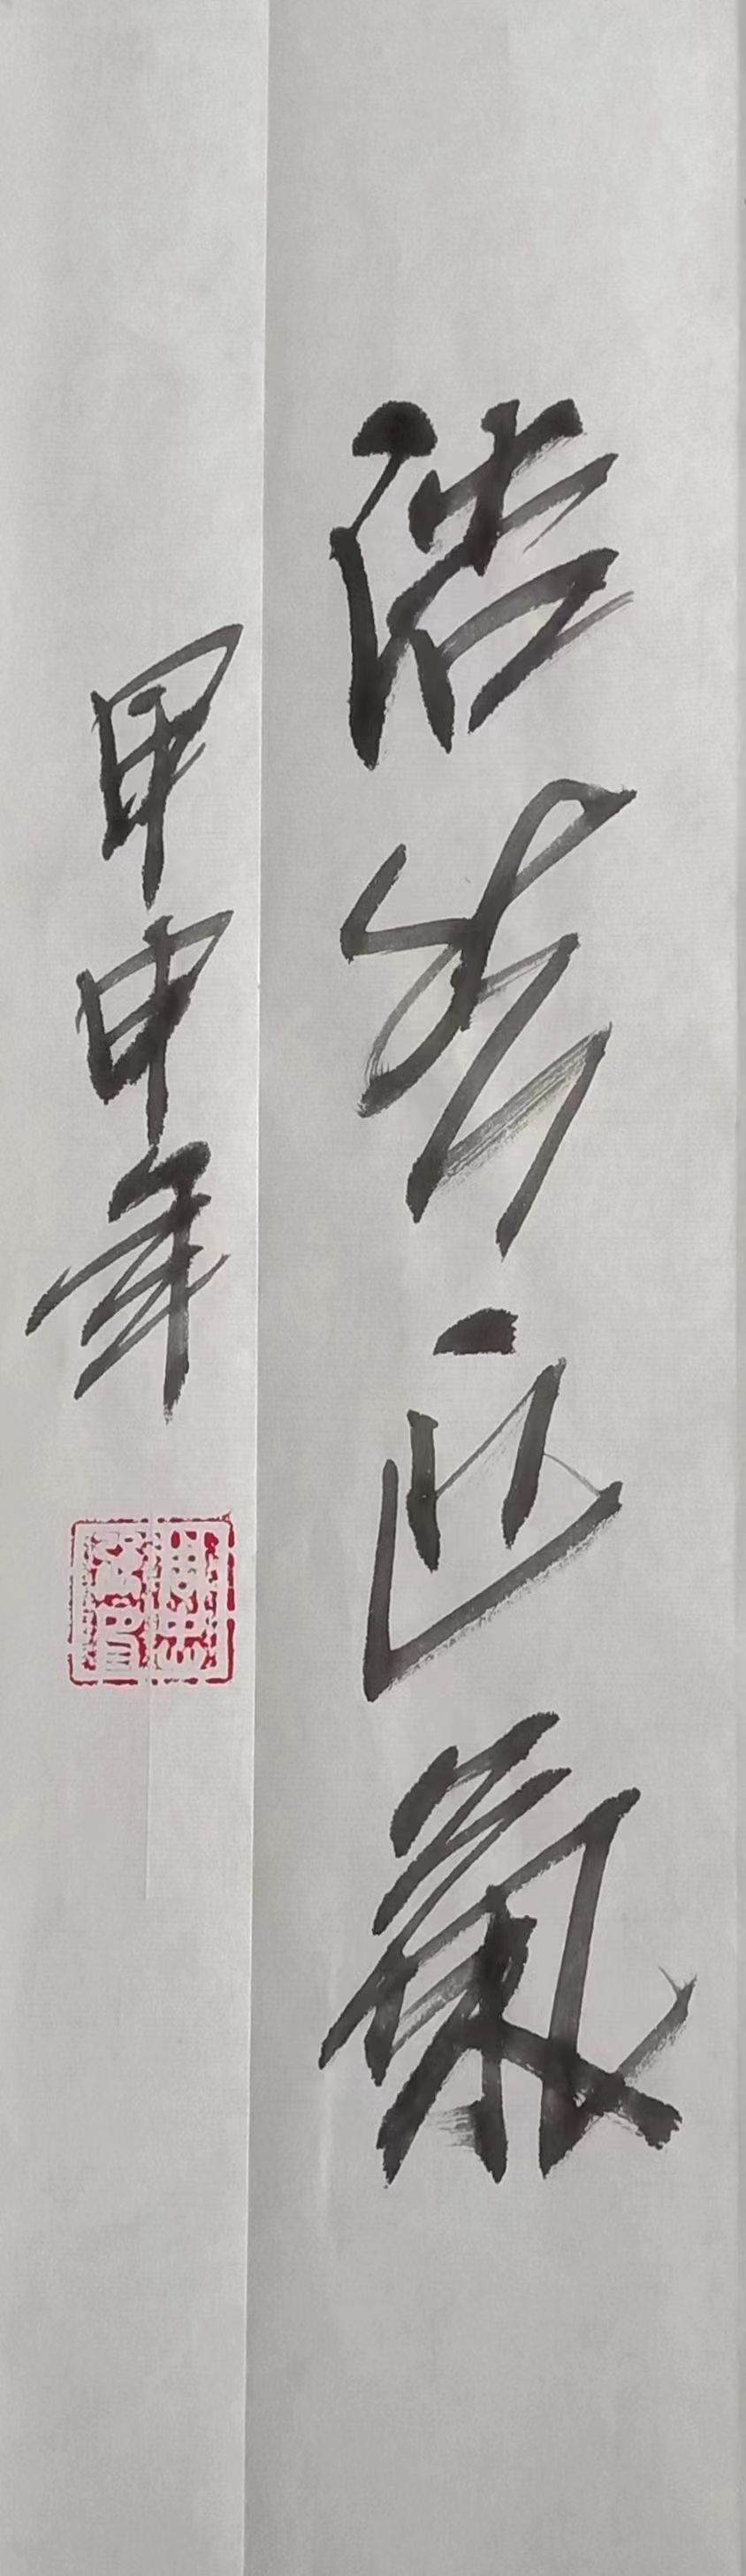 浩然正氣
甲申年